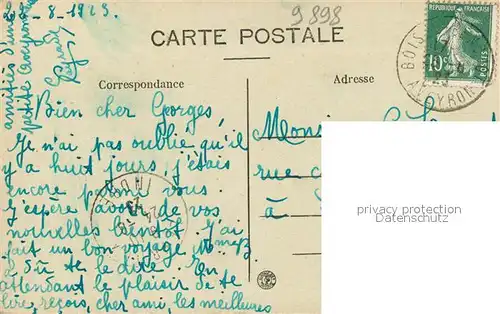 22-8-1923
9898
CARTE POSTALE
REPUBLIQUE FRANÇAISE
10c
POSTES
BOIS
AVEYRON
Correspondance
Adresse
amitiés d'une
petite
Bien cher Georges,
Je n'ai pas oublié qu'il
y a huit jours j'étais
encore parmi vous.
J'espère avoir de vos
nouvelles bientôt. J'ai
fait un bon voyage
a dû te le dire. En
attendant le plaisir de te
lire, reçois, cher ami, les meilleures
rue
à
privacy protection
Datenschutz